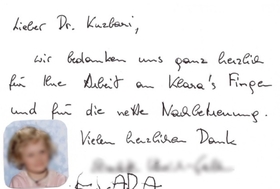 Lieber Dr. Kuzbari,
wir bedanken uns ganz herzlich
für Ihre Arbeit an Klara's Finger
und für die nette Nachbetreuung.
Vielen herzlichen Dank